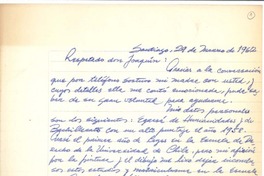 Santiago, 29 de Enero de 1962
Respetado don Joaquín: Gracias a la conversación
que por teléfono sostuvo mi madre con usted, y
cuyos detalles ella me contó emocionada, pude sa-
ber de su gran voluntad para ayudarme.
Mis datos personales
son los siguientes: Egresé de Humanidades y de
Bachillerato con un alto puntaje el año 1958.
Cursé el primer año de leyes en la Escuela de De-
recho de la Universidad de Chile, pero mi afición
por la pintura y el dibujo me hizo dejar inconclu-
sos estos estudios, y matricularme en la Escuela